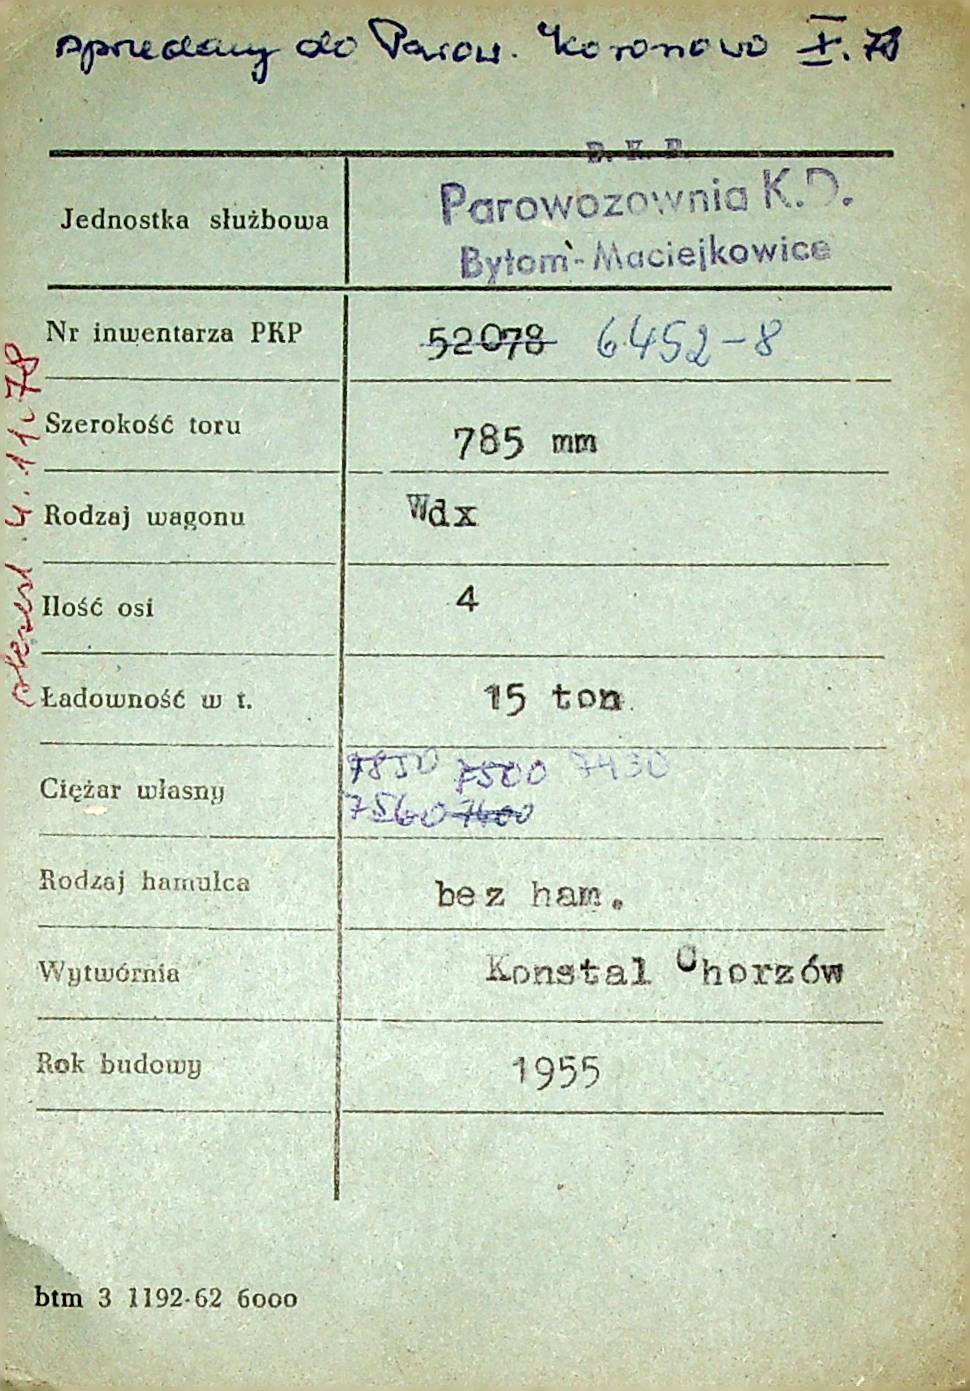 sprzedany do Parow. Koronowo X. 78
P. K. P.
Parowozownia K.D.
Jednostka służbowa
Bytom-Maciejkowice
Nr inwentarza PKP 52078 6452-8
Szerokość toru 785 mm
Rodzaj wagonu Wdx
Ilość osi 4
Ładowność w t. 15 ton
7850 7500 7430
Ciężar własny
7560 7400
Rodzaj hamulca bez ham.
Wytwórnia Konstal Chorzów
Rok budowy 1955
4.11.78
btm 3 1192-62 6000